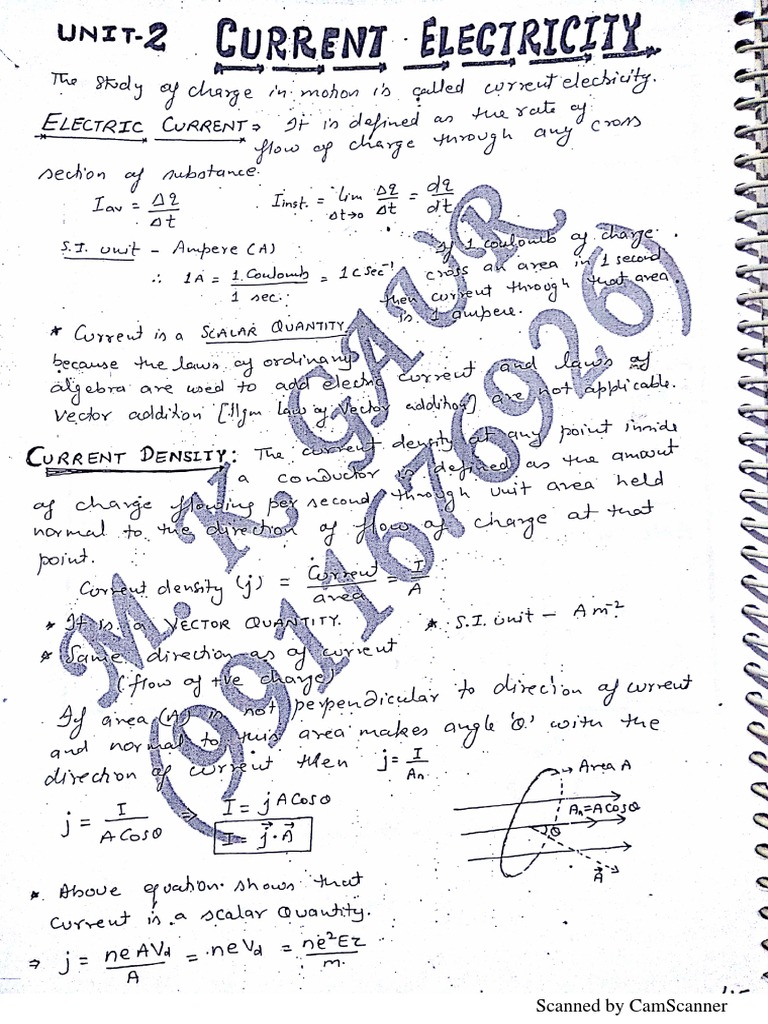 UNIT-2 CURRENT ELECTRICITY
The study of charge in motion is called current electricity.
ELECTRIC CURRENT ⇒ It is defined as the rate of
flow of charge through any cross
section of substance.
Iav = Δq/Δt   Iinst. = lim Δt→0 Δq/Δt = dq/dt
S.I. unit - Ampere (A)
∴ 1A = 1 Coulomb / 1 sec. = 1C sec⁻¹
If 1 coulomb of charge
cross an area in 1 second
then current through that area
is 1 ampere.
* Current is a SCALAR QUANTITY
because the laws of ordinary
algebra are used to add electric current and laws of
vector addition [llgm law of vector addition] are not applicable.
CURRENT DENSITY: The current density at any point inside
a conductor is defined as the amount
of charge flowing per second through unit area held
normal to the direction of flow of charge at that
point.
Current density (j) = Current/area = I/A
* It is a VECTOR QUANTITY.   * S.I. unit - Am⁻²
* Same direction as of current
(flow of +ve charge)
If area (A) is not perpendicular to direction of current
and normal to this area makes angle 'θ' with the
direction of current then j = I/An
j = I/ACosθ ⇒ I = jACosθ
I = j⃗·A⃗
→ Area A
An = ACosθ
θ
A⃗
* Above equation shows that
current is a scalar quantity.
⇒ j = neAVd/A = neVd = ne²Eτ/m
M. K. GAUR
(9911676926)
Scanned by CamScanner